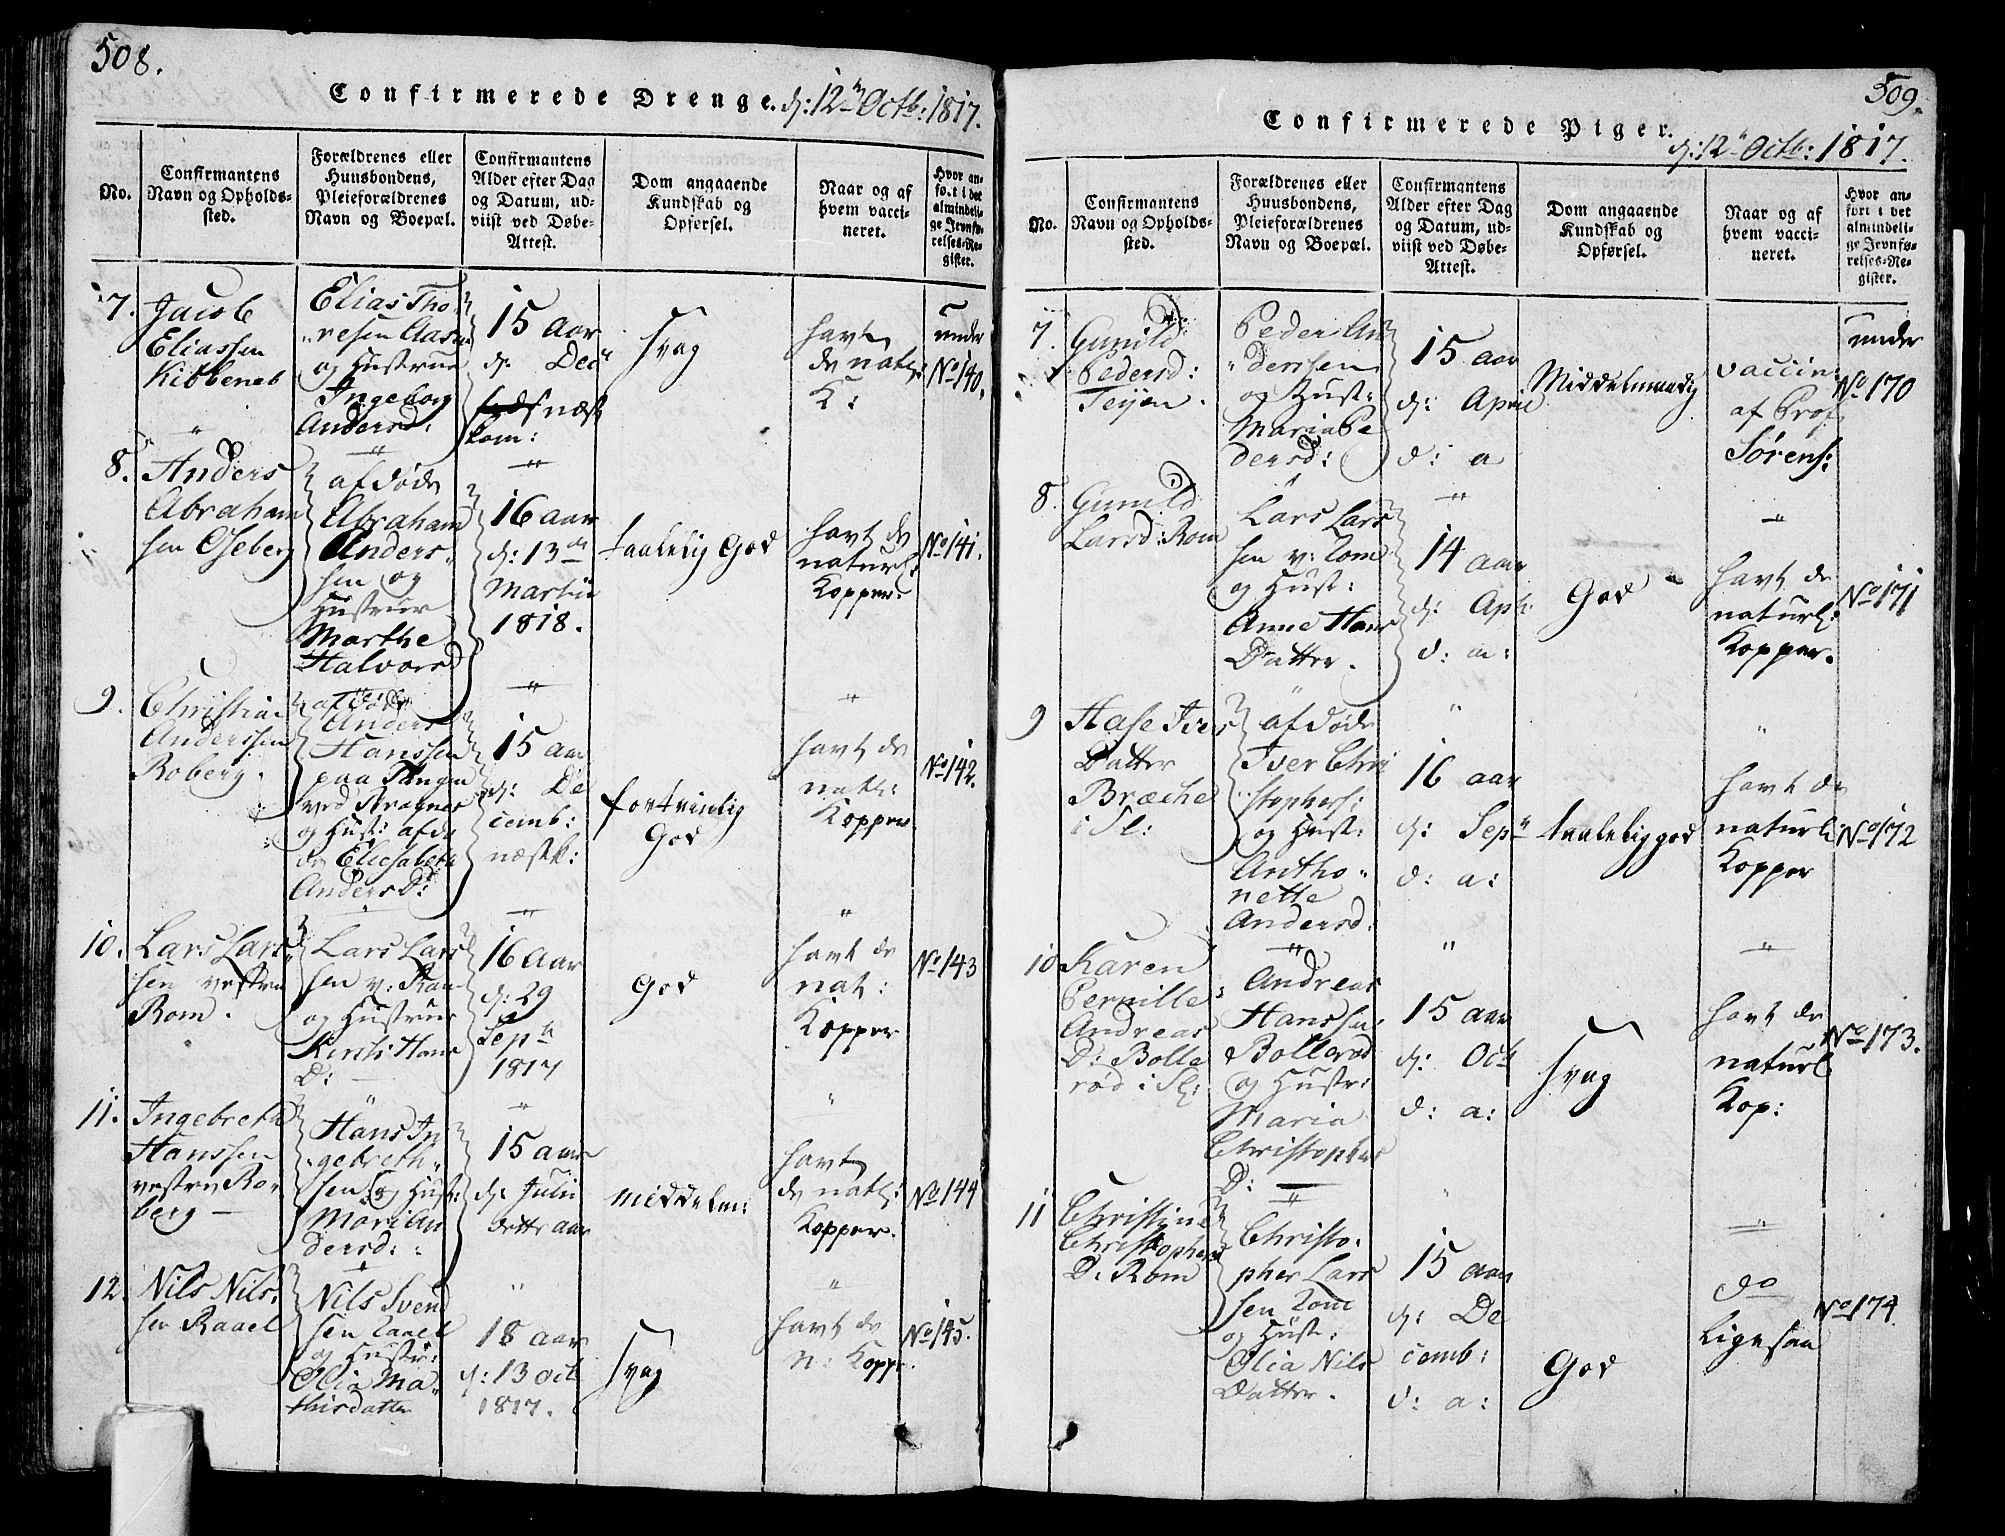 508.
Confirmerede Drenge. d: 12te Octb: 1817.
No.
Confirmantens
Navn og Opholds-
sted.
Forældrenes eller
Huusbondens,
Pleieforældrenes
Navn og Boepæl.
Confirmantens
Alder efter Dag
og Datum, ud-
viist ved Døbe-
Attest.
Dom angaaende
Kundskab og
Opførsel.
Naar og af
hvem vacci-
neret.
Hvor an-
ført i det
almindeli-
ge Jevnfø-
relses-Re-
gister.
7.
Jacob
Eliassen
Elias Tho-
resen
og Hustrue
Ingeborg
Andersd:
15 aar
d: Decr
næst
kom:
svag
havt
de natl:
K:
under
No 140.
8.
Anders
Abraham
sen Oseberg
afdøde
Abraham
Anders-
sen og
Hustrue
Marthe
Halvorsd
16 aar
d: 13de
Martii
1818.
taalelig God
havt de
naturl:
Kopper.
No 141.
9.
Christian
Anderssen
Roberg.
afdøde
Anders
Hanssen
paa Tangen
ved Bragnes
og Hust: afdø
de Eliesabeth
Anders D:
15 aar
d: De
cemb:
næstk:
fortrinlig
God
havt de
natl:
Kopper
No 142.
10.
Lars Lars
sen vestre
Rom.
Lars Lars
sen v: Rom
og Hustrue
Kirsti Hans
D:
16 aar
d: 29
Septr
1817
God
havt de
nat:
Kopper
No 143
11.
Ingebreth
Hanssen
vestre Ro-
berg
Hans In
gebreth-
sen og Hust:
Mari An
dersd:
15 aar
d: Julii
dette aar
middelm:
havt
de natl:
Kopper.
No 144
12.
Nils Nils-
sen Raael
Nils Svend
sen Raael
og Hustr:
Olia Ma-
thisdatter
18 aar
d: 13 Oct
1817.
svag
havt de
n: Kopp.
No 145.
509.
Confirmerede Piger.
d: 12te Octb: 1817.
No.
Confirmantens
Navn og Opholds-
sted.
Forældrenes eller
Huusbondens,
Pleieforældrenes
Navn og Boepæl.
Confirmantens
Alder efter Dag
og Datum, ud-
viist ved Døbe-
Attest.
Dom angaaende
Kundskab og
Opførsel.
Naar og af
hvem vacci-
neret.
Hvor an-
ført i det
almindeli-
ge Jevnfø-
relses-Re-
gister.
7.
Gunild
Pedersd:
Teijen.
Peder An
derssen
og Hust:
Maria Pe
dersd:
15 aar
d: April
d: a
Middelmaadig
vaccin:
af Prof
Sørens:
under
No 170
8.
Gunild
Larsd: Rom
Lars Lars
sen v: Rom
og Hust:
Anne Hans
Datter.
14 aar
d: Apr:
d: a:
God
havt de
naturl:
Kopper.
No 171
9
Aase Ivers
Datter
Bræche
i Sl:
afdøde
Iver Chri
stophers:
og Hust:
Antho-
nette
Andersd:
16 aar
d: Sepr
d: a:
taalelig god
havt de
naturl:
Kopper
No 172
10
Karen
Pernille
Andreas
D: Bolle
rød i Sl:
Andreas
Hanssen
Bollerød
og Hustr:
Maria
Christophers
D:
15 aar
d: Oct
d: a:
svag
havt de
naturl
Kop:
No 173.
11
Christine
Christophers
D: Rom
Christo-
pher Lars
sen Rom
og Hust:
Olia Nils
Datter.
15 aar
d: De
cemb:
d: a:
God
do
ligesaa
No 174.